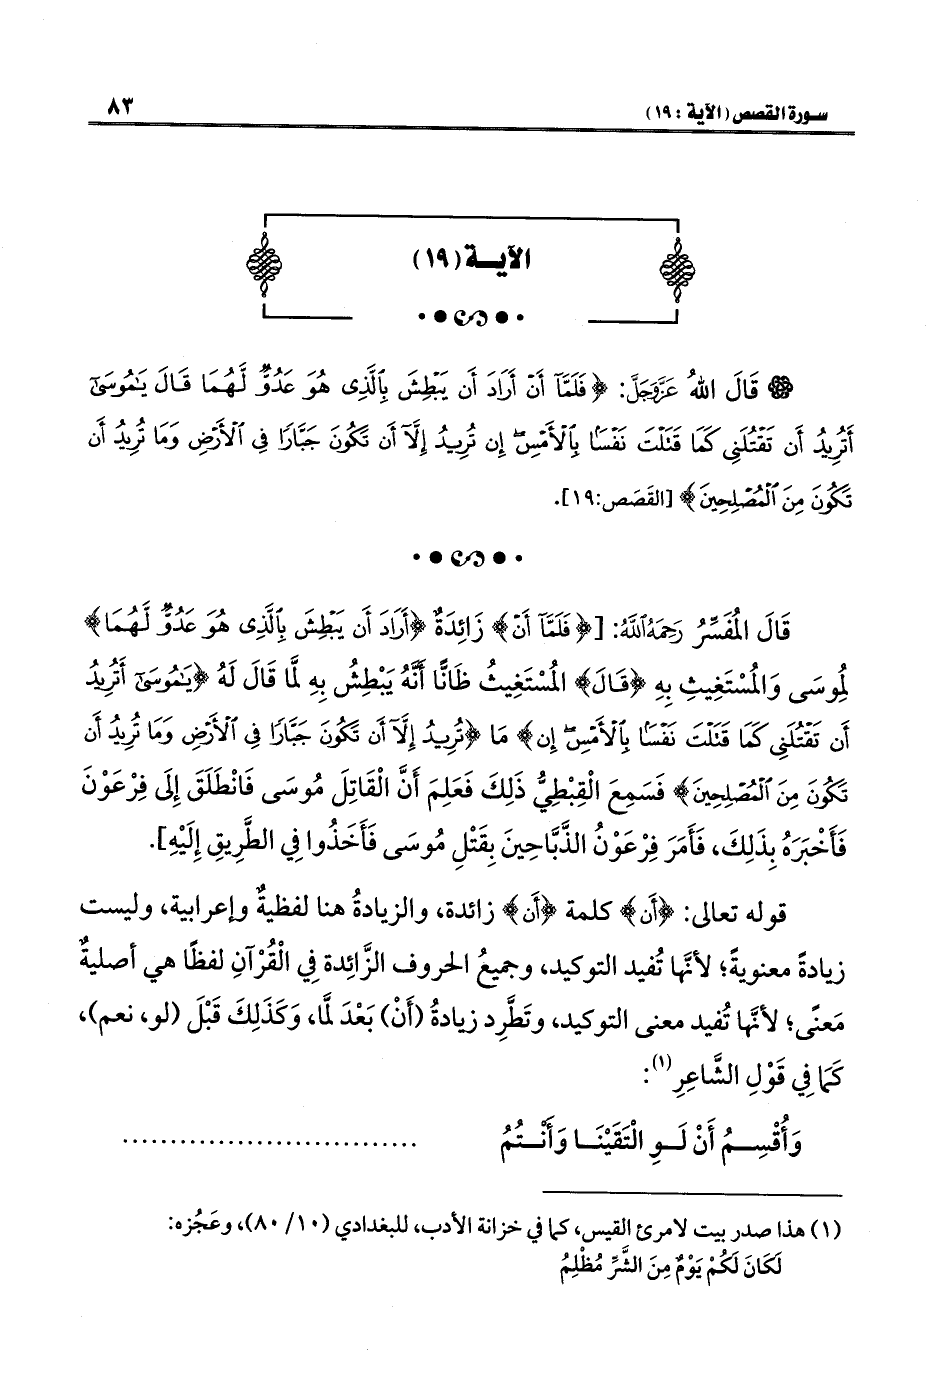 سورة القصص (الآية: ١٩) ٨٣
الآيـــة (١٩)
قَالَ اللهُ عَزَّوَجَلَّ: ﴿فَلَمَّآ أَنۡ أَرَادَ أَن يَبۡطِشَ بِٱلَّذِى هُوَ عَدُوٌّ لَّهُمَا قَالَ يَٰمُوسَىٰٓ
أَتُرِيدُ أَن تَقۡتُلَنِى كَمَا قَتَلۡتَ نَفۡسَۢا بِٱلۡأَمۡسِۖ إِن تُرِيدُ إِلَّآ أَن تَكُونَ جَبَّارٗا فِى ٱلۡأَرۡضِ وَمَا تُرِيدُ أَن
تَكُونَ مِنَ ٱلۡمُصۡلِحِينَ﴾ [القَصَص:١٩].
قَالَ المُفَسِّرُ رَحِمَهُ اللَّهُ: [﴿فَلَمَّآ أَنۡ﴾ زَائِدَةٌ ﴿أَرَادَ أَن يَبۡطِشَ بِٱلَّذِى هُوَ عَدُوٌّ لَّهُمَا﴾
لِمُوسَى وَالمُسْتَغِيثِ بِهِ ﴿قَالَ﴾ المُسْتَغِيثُ ظَانًّا أَنَّهُ يَبْطِشُ بِهِ لِمَا قَالَ لَهُ ﴿يَٰمُوسَىٰٓ أَتُرِيدُ
أَن تَقۡتُلَنِى كَمَا قَتَلۡتَ نَفۡسَۢا بِٱلۡأَمۡسِۖ إِن﴾ مَا ﴿تُرِيدُ إِلَّآ أَن تَكُونَ جَبَّارٗا فِى ٱلۡأَرۡضِ وَمَا تُرِيدُ أَن
تَكُونَ مِنَ ٱلۡمُصۡلِحِينَ﴾ فَسَمِعَ الْقِبْطِيُّ ذَلِكَ فَعَلِمَ أَنَّ الْقَاتِلَ مُوسَى فَانْطَلَقَ إِلَى فِرْعَوْنَ
فَأَخْبَرَهُ بِذَلِكَ، فَأَمَرَ فِرْعَوْنُ الذَّبَّاحِينَ بِقَتْلِ مُوسَى فَأَخَذُوا فِي الطَّرِيقِ إِلَيْهِ].
قوله تعالى: ﴿أَن﴾ كلمة ﴿أَن﴾ زائدة، والزيادةُ هنا لفظيةٌ وإعرابية، وليست
زيادةً معنويةً؛ لأنَّها تُفيد التوكيد، وجميعُ الحروف الزَّائِدة فِي الْقُرْآنِ لفظًا هي أصليةٌ
مَعنًى؛ لأنَّها تُفيد معنى التوكيد، وتَطَّرِد زيادةُ (أَنْ) بَعْدَ لَمَّا، وَكَذَلِكَ قَبْلَ (لو، نعم)،
كَمَا فِي قَوْلِ الشَّاعِرِ(١):
وَأُقْسِـــمُ أَنْ لَــوِ الْتَقَيْنَــا وَأَنْــتُمُ ...............................
(١) هذا صدر بيت لامرئ القيس، كما في خزانة الأدب، للبغدادي (١٠/ ٨٠)، وعَجُزه:
لَكَانَ لَكُمْ يَوْمٌ مِنَ الشَّرِّ مُظْلِمُ